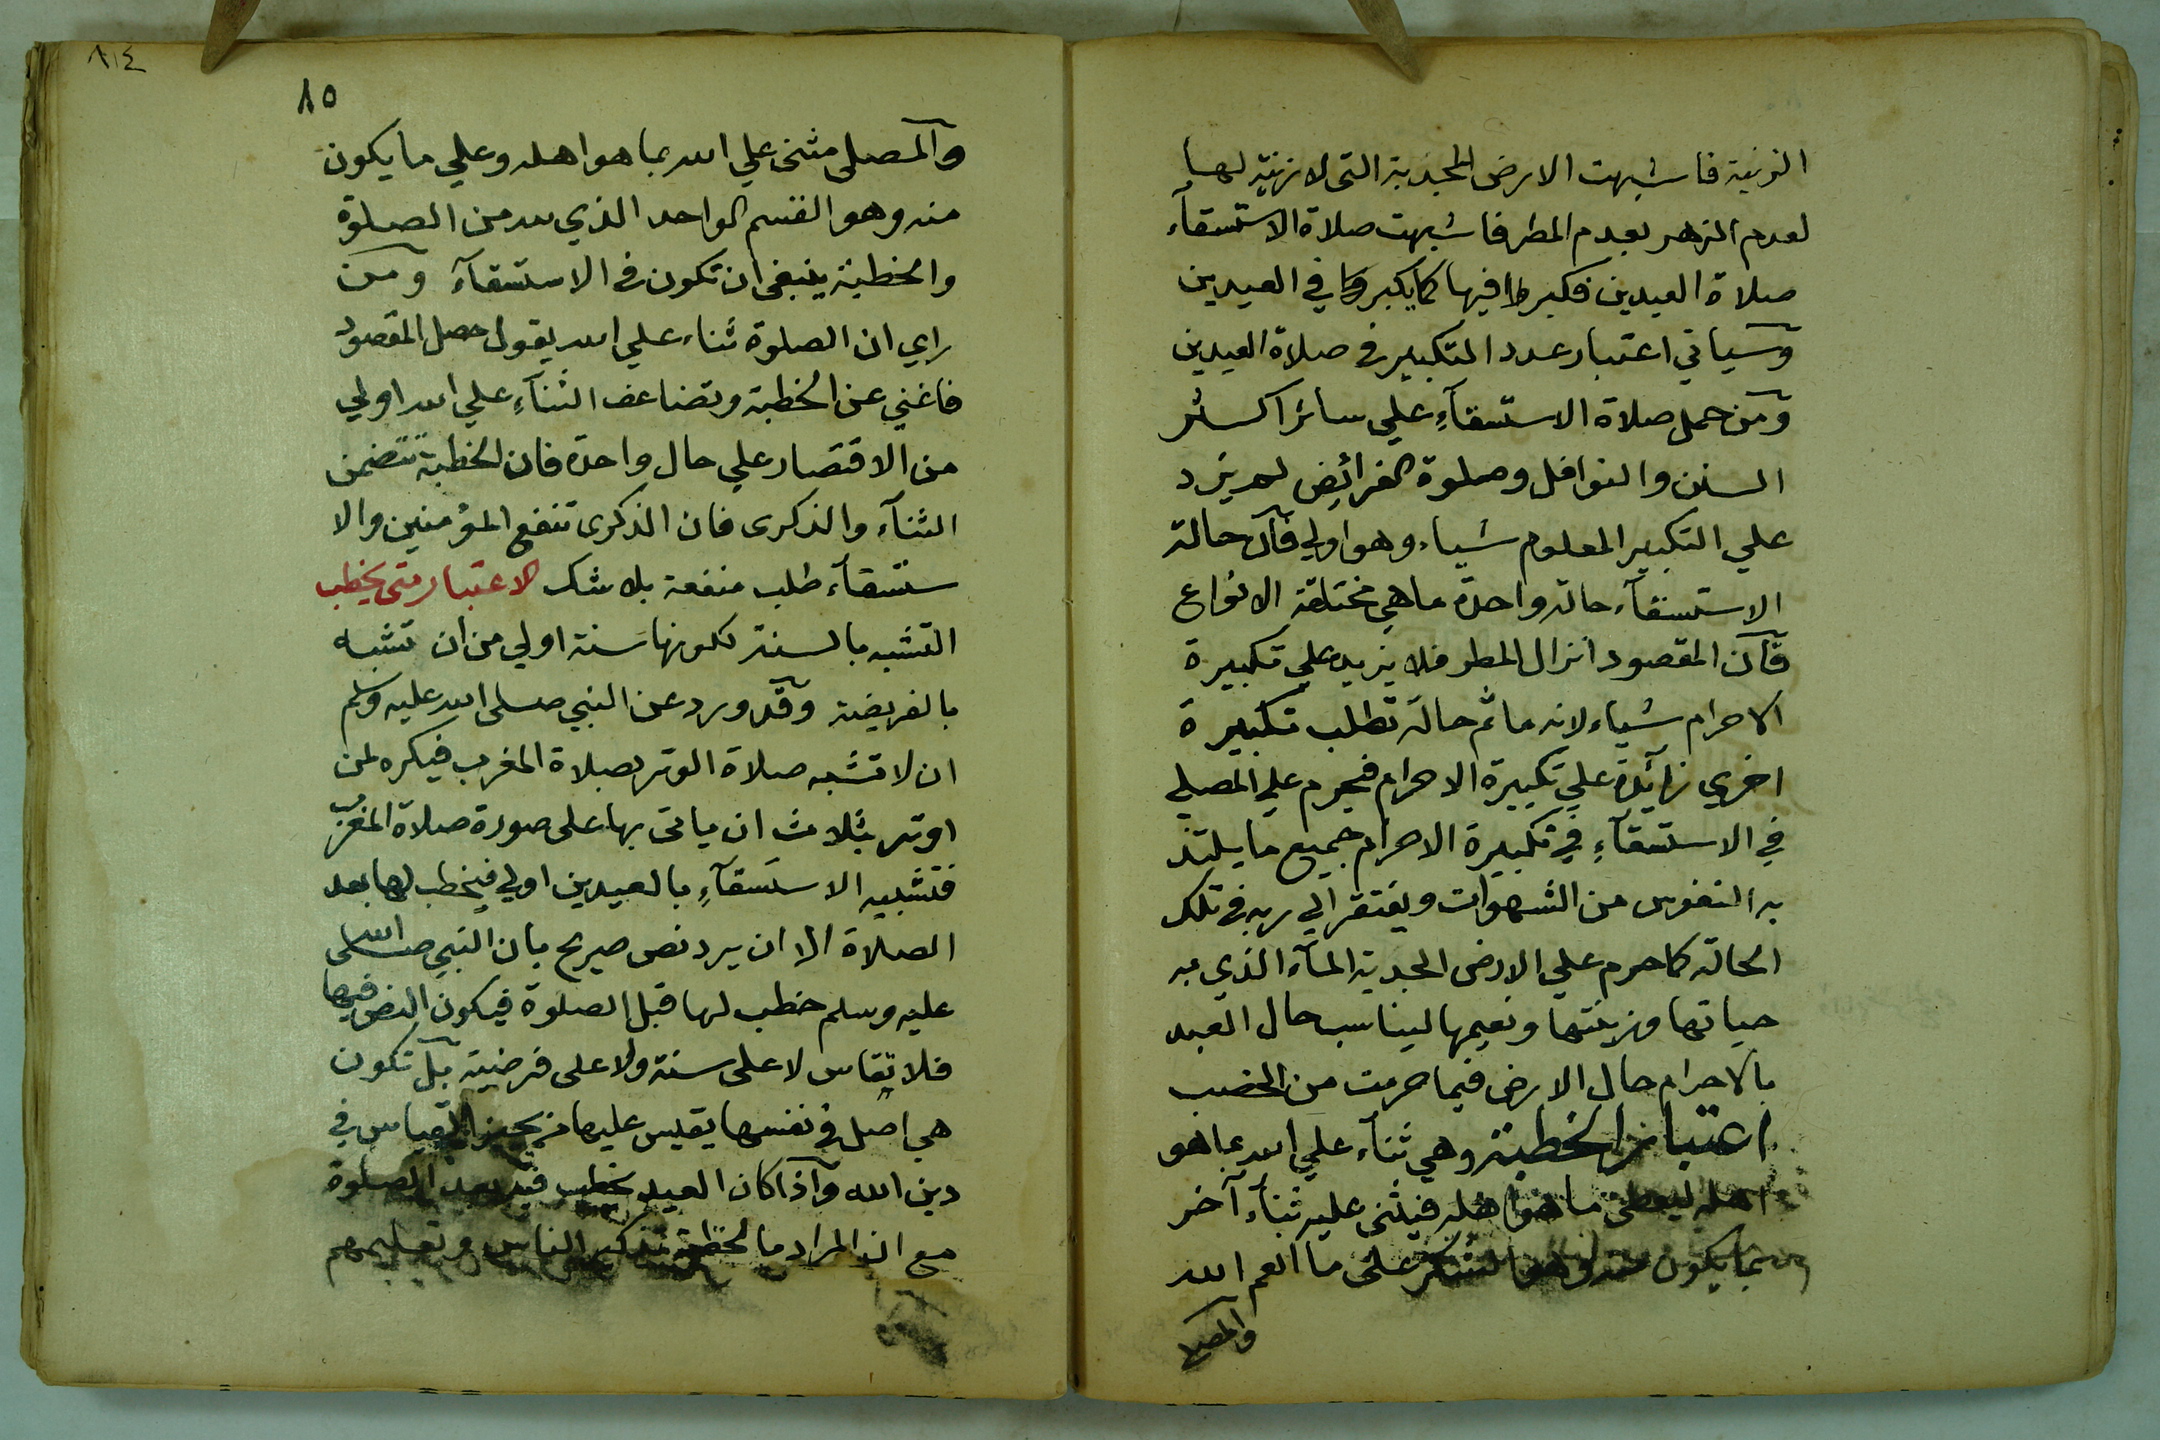 الزينة فاشبهت الارض المجدبة التى لا زينة لها
لعدم الزهر بعدم المطر فاشبهت صلاة الاستسقآء
صلاة العيدين فكبروا فيها كما يكبروا في العيدين
وسياتي اعتبار عدد التكبير في صلاة العيدين
ومن حمل صلاة الاستسقآءِ علي سائر اكثر
السنن والنوافل وصلوة الفرائِض لم يزد
علي التكبير المعلوم شياء وهو اولي فان حالة
الاستسقآء حالة واحدة ما هي مختلفة الانواع
فان المقصود انزال المطر فلا يزيد علي تكبيرة
الاحرام شياء لانه ما ثم حالة تطلب تكبيرة
اخري زآئدة علي تكبيرة الاحرام فيحرم علي المصلي
في الاستسقآءِ في تكبيرة الاحرام جميع ما يلتذ
به النفوس من الشهوات ويفتقر الي ربه في تلك
الحالة كما حرم علي الارض الجدبة المآء الذي به
حياتها وزينتها ونعيمها ليناسب حال العبد
بالاحرام حال الارض فيما حرمت من الخصب
اعتبار الخطبة وهي ثنآء علي الله بما هو
اهله ليعطى ما هو اهله فيثنى عليه ثنآء آخر
بما يكون منه وهو الشكر على ما انعم الله
والمصلي
٨١٤
٨٥
والمصلى مثنى علي الله بما هو اهله وعلي ما يكون
منه وهو القسم الواحد الذي لله من الصلوة
والخطبة ينبغي ان تكون في الاستسقآء ومن
راي ان الصلوة ثناء علي الله يقول حصل المقصود
فاغني عن الخطبة وتضاعف الثنآءِ علي الله اولي
من الاقتصار علي حال واحدة فان الخطبة تتضمن
الثنآء والذكرى فان الذكرى تنفع المؤمنين والا
ستسقآء طلب منفعة بلا شك الاعتبار متى يخطب
التشبه بالسنة لكونها سنة اولي من ان تشبه
بالفريضة وقد ورد عن النبي صلى الله عليه وسلم
ان لا تشبه صلاة الوتر بصلاة المغرب فيكره لمن
اوتر بثلاث ان ياتى بها على صورة صلاة المغرب
فتشبيه الاستسقآءِ بالعيدين اولي فيخطب لها بعد
الصلاة الا ان يرد نص صريح بان النبي صلى الله
عليه وسلم خطب لها قبل الصلوة فيكون النص فيها
فلا تقاس لا على سنة ولا على فرضية بل تكون
هي اصل في نفسها يقيس عليها من يجيز القياس في
دين الله وآذا كان العيد يخطب فيه بعد الصلوة
مع ان المراد بالخطبة تذكير الناس وتعليمهم